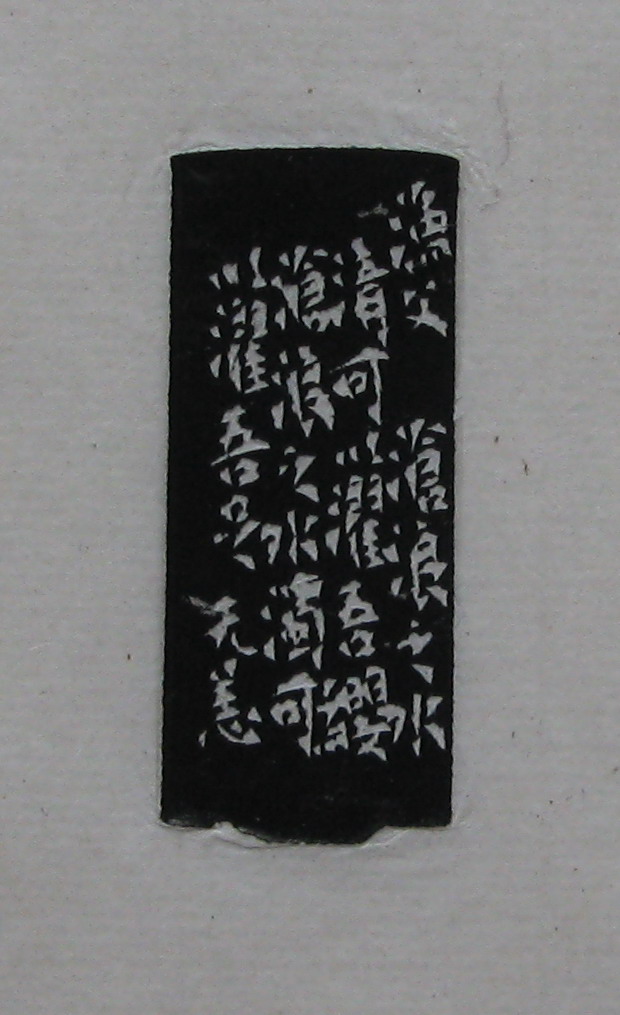 漁父　滄浪之水
清可以濯吾纓
滄浪之水濁可
以濯吾足　无恙